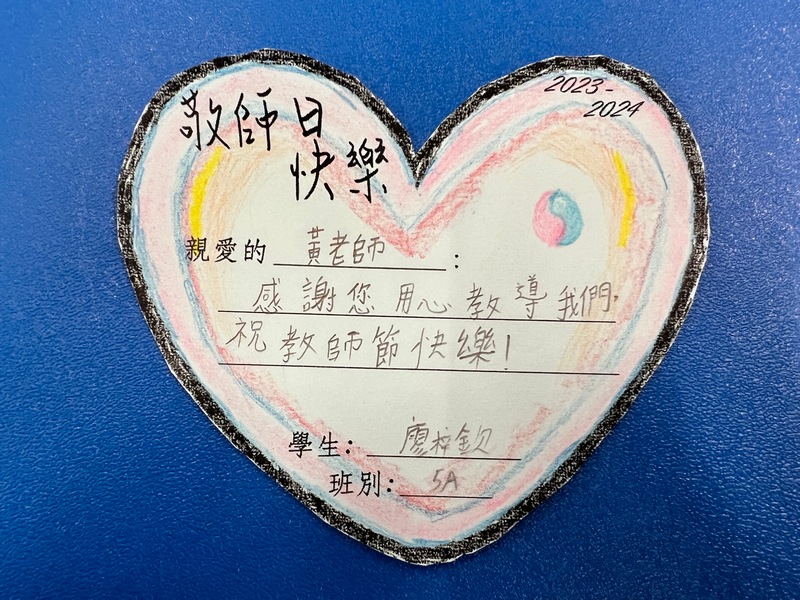 敬師日
快樂
2023-
2024
親愛的 黃老師：
感謝您用心教導我們，
祝教師節快樂！
學生：廖梓欽
班別：5A